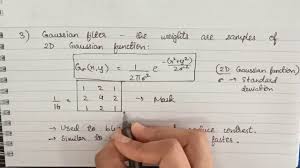 3) Gaussian filter - the weights are samples of
2D Gaussian function:
Gσ(x,y) = 1/2πσ² e^-(x²+y²)/2σ²
(2D Gaussian function)
σ → Standard deviation
1/16 = 1 2 1
2 4 2 → Mask
1 2 1
→ Used to reduce contrast.
→ Similar to faster.